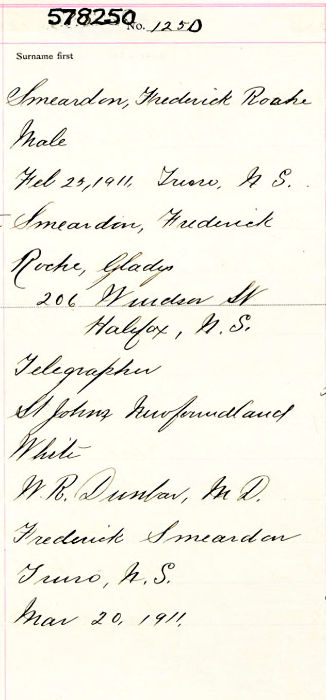 578250
No. 1250
Surname first
Smeardon, Frederick Roche
Male
Feb 23, 1911, Truro, N S.
Smeardon, Frederick
Roche, Gladys
206 Windsor St
Halifax, N.S.
Telegrapher
St Johns Newfoundland
White
W R. Dunbar, M D.
Frederick Smeardon
Truro, N.S.
Mar 20, 1911.